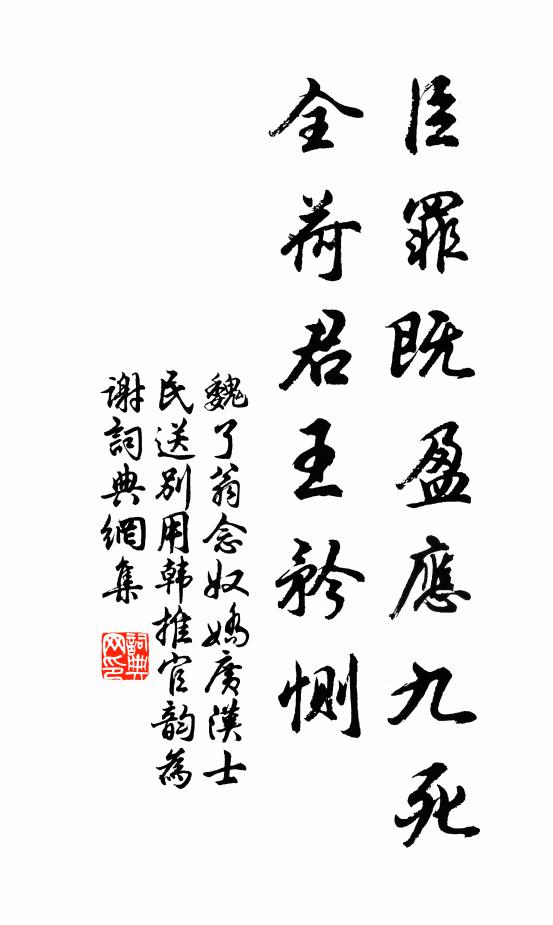 臣罪既盈應九死
全荷君王矜惻
魏了翁念奴嬌廣漢士
民送别用韩推官韵為
谢詞典網集
詞典
网印